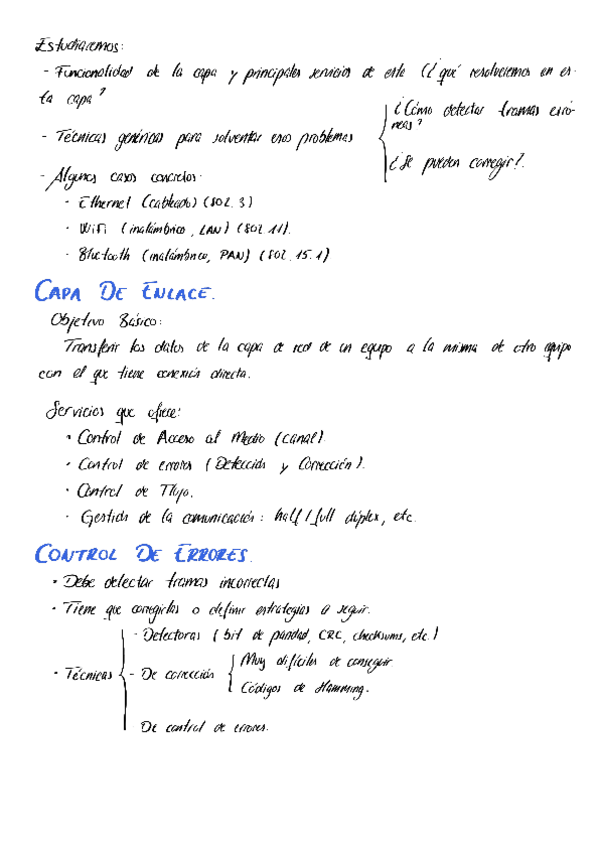 Estudiaremos:
- Funcionalidad de la capa y principales servicios de esta (¿qué resolveremos en es-
ta capa?
- Técnicas genéricas para solventar esos problemas
¿Cómo detectar tramas erró-
neas?
¿Se pueden corregir?.
- Algunos casos concretos.
· Ethernet (cableado) (802.3)
· WiFi (inalámbrico, LAN) (802.11).
· Bluetooth (inalámbrico, PAN) (802.15.1)
CAPA DE ENLACE.
Objetivo Básico:
Transferir los datos de la capa de red de un equipo a la misma de otro equipo
con el que tiene conexión directa.
Servicios que ofrece:
· Control de Acceso al Medio (canal).
· Control de errores (Detección y Corrección).
· Control de Flujo.
· Gestión de la comunicación: half/full dúplex, etc.
CONTROL DE ERRORES.
· Debe detectar tramas incorrectas
· Tiene que corregirlas o definir estrategias a seguir.
· Técnicas
- Detectoras (bit de paridad, CRC, checksums, etc.)
- De corrección
Muy difíciles de conseguir.
Códigos de Hamming.
De control de errores.